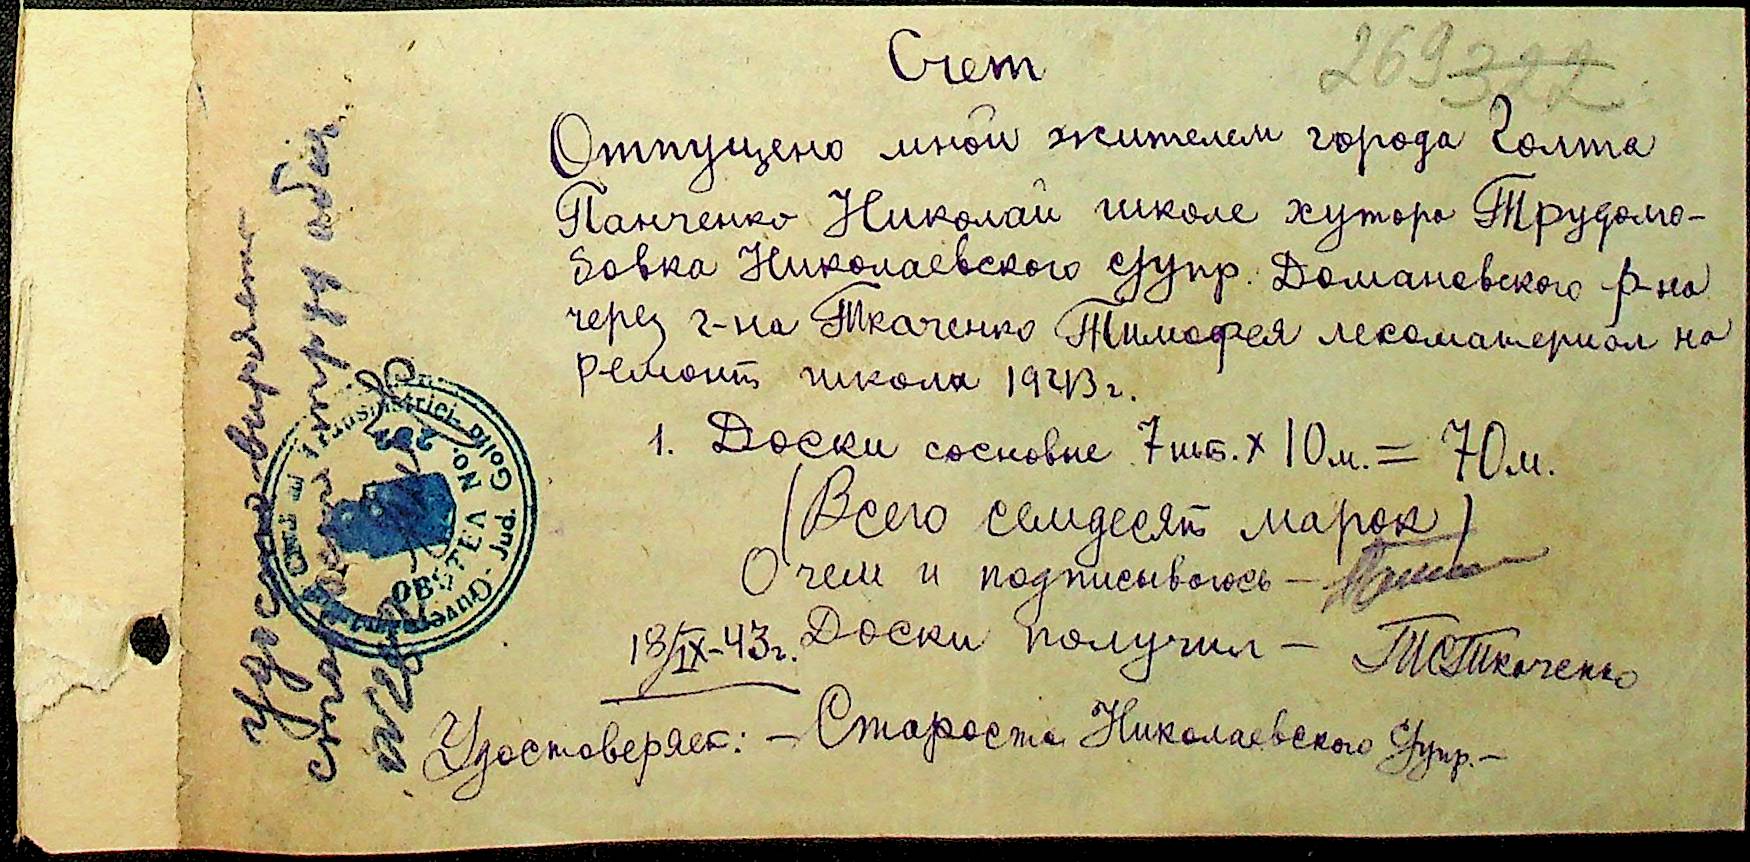 Счет
269 322
Отпущено мной жителем города Голта
Панченко Николай школе хутора Трудома-
ховка Николаевского с/упр. Домановского р-на
через г-на Ткаченко Тимофея лесоматериал на
ремонт школы 1943 г.
1. Доски сосновые 7 шт. х 10 м. = 70 м.
(Всего семдесят марок)
О чем и подписываюсь –
18/IX-43 г. Доски получил – ТСТкаченко
Удостоверяет: – Староста Николаевского с/упр. –
OBSTEA No. 292
Guvernământul Transnistriei Jud. Golta